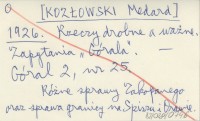 [KOZŁOWSKI Medard]
1926. Rzeczy drobne a ważne.
Zapytania „Górala". —
Góral 2, nr 25.
Różne sprawy Zakopanego
oraz sprawa granicy na Spiszu i Orawie.